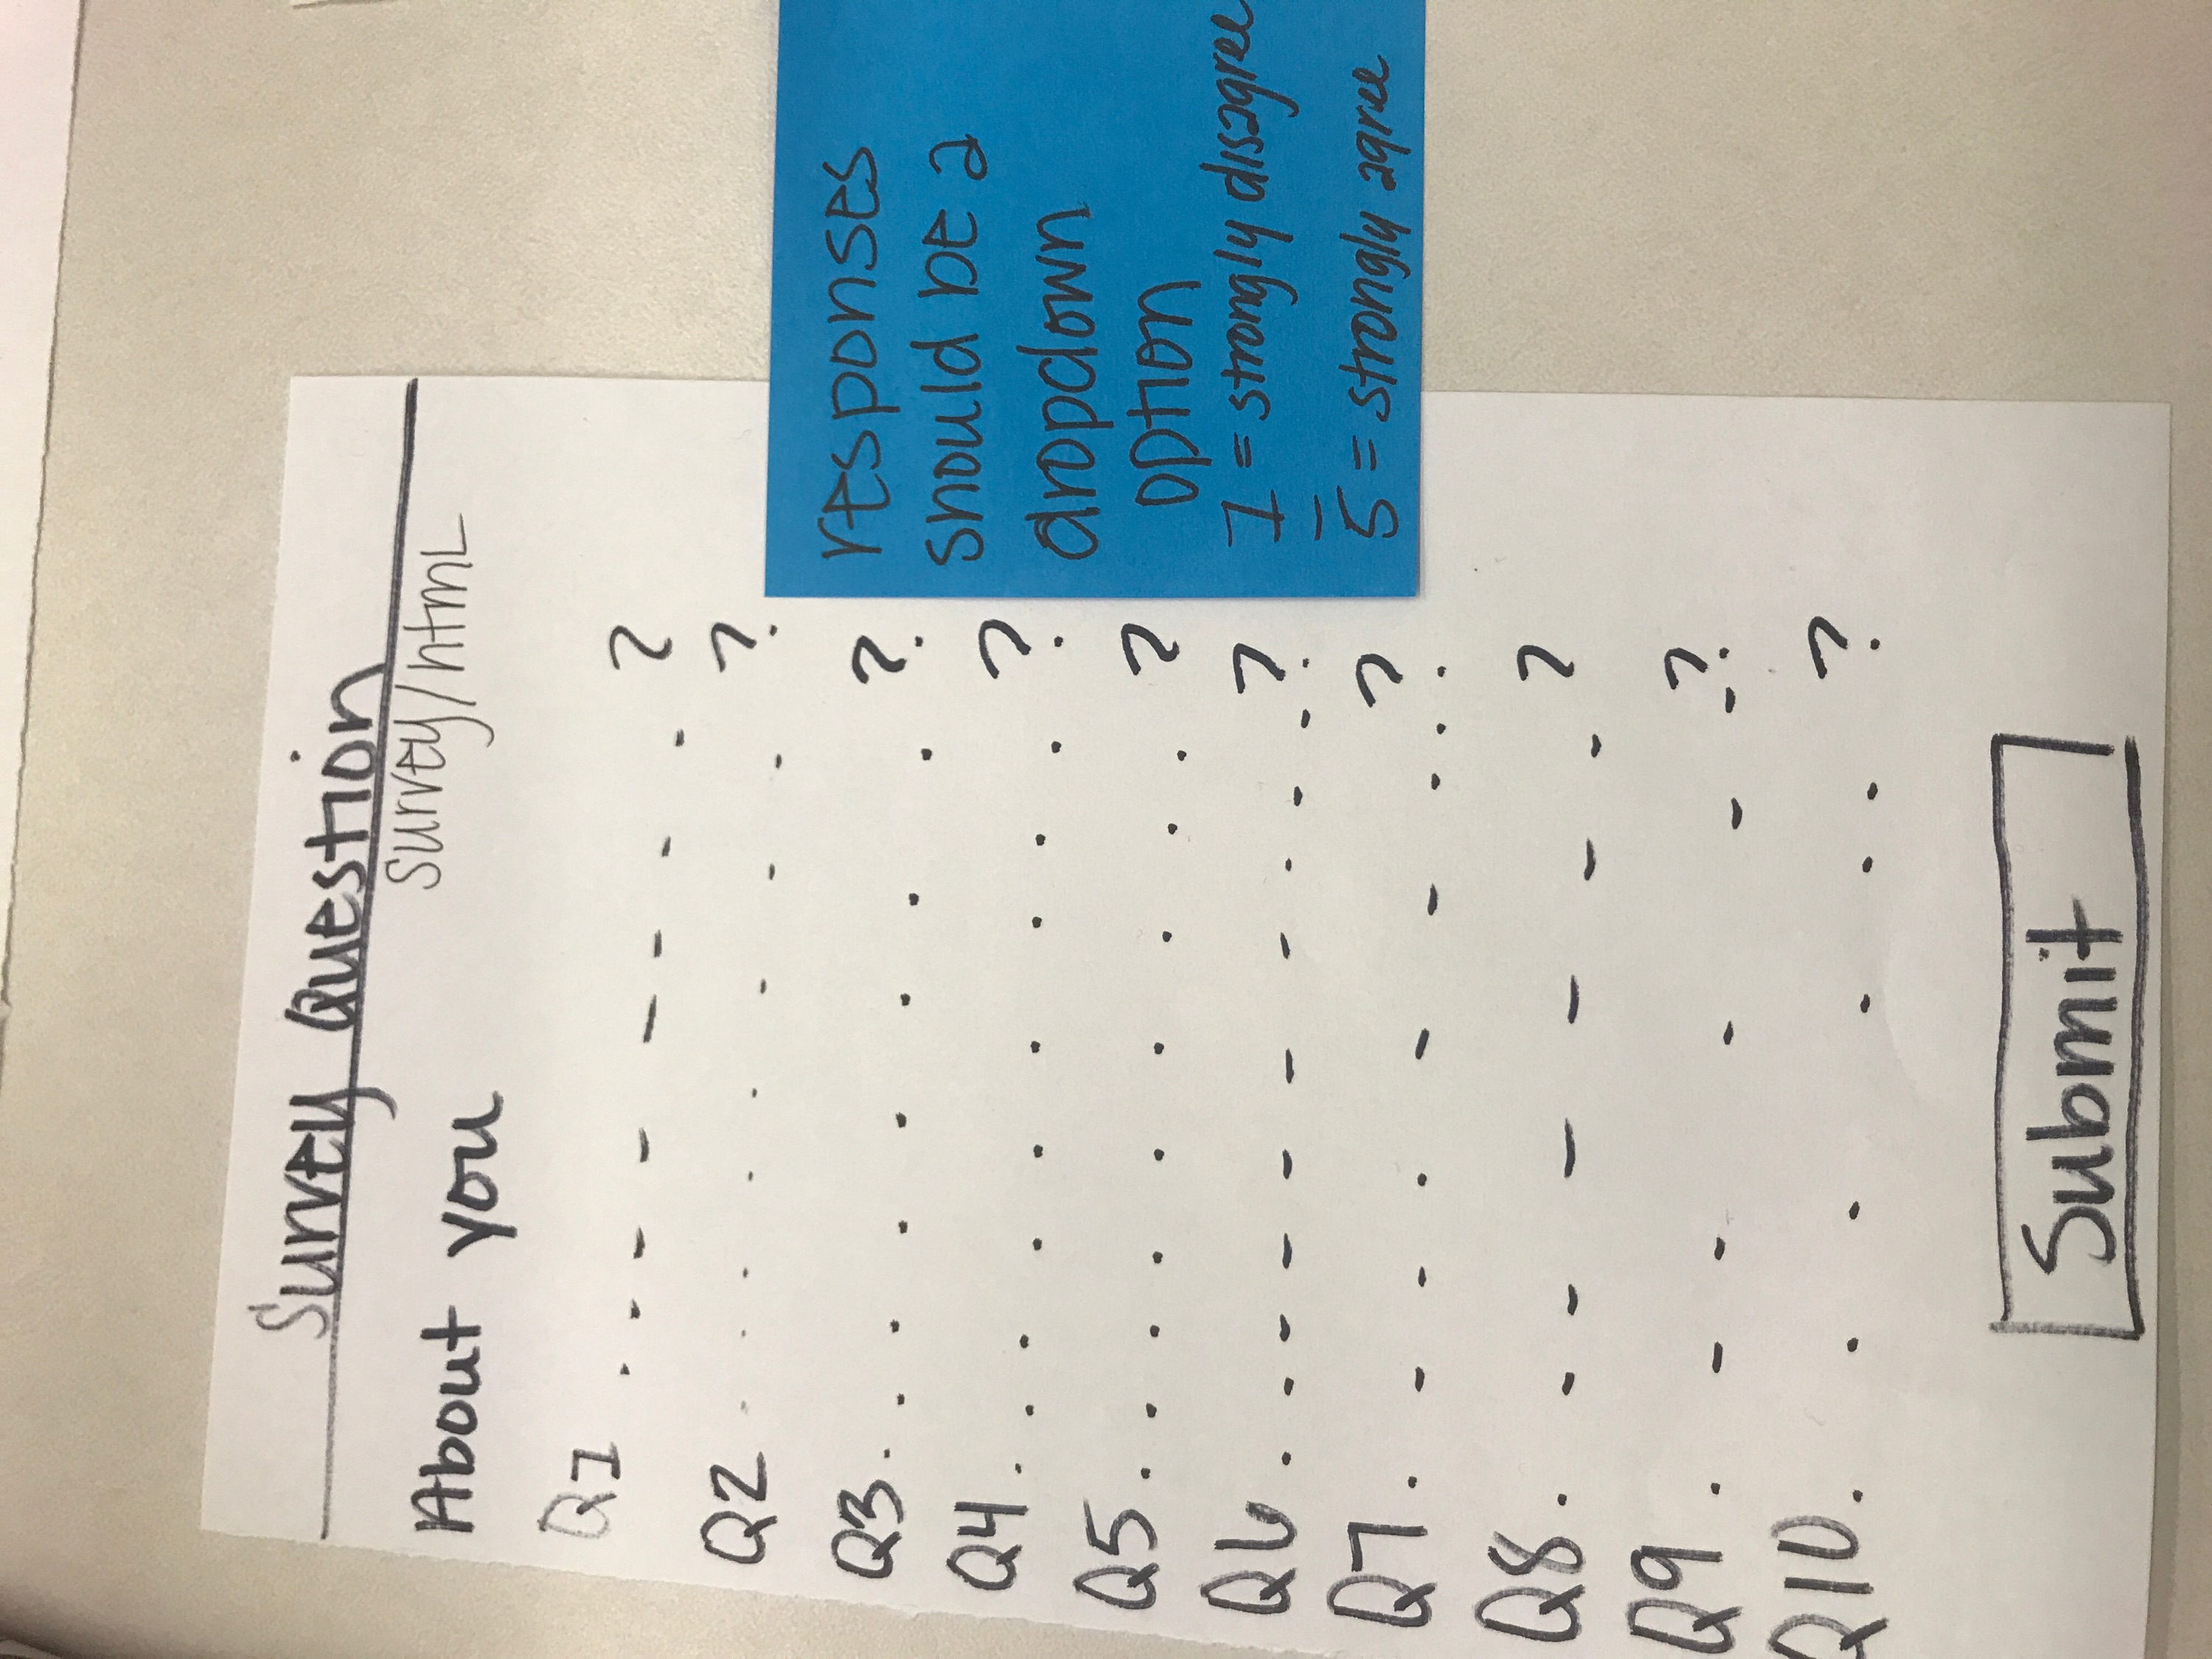 Survey Question
survey/html
About you
Q1 . . - - - - - . ?
Q2 . . . . . - - - ?
Q3 . . . . . . . . ?
Q4 . . . . . . . . . ?
Q5 . . . . . . . . . ?
Q6 . . - - - - - . - - ?
Q7 . - - . - - . . ?
Q8 . - - - - - - ?
Q9 . - - - - - ?
Q10 . . . . . . ?
Submit
responses
should be a
dropdown
option
1 = strongly disagree
–
5 = strongly agree